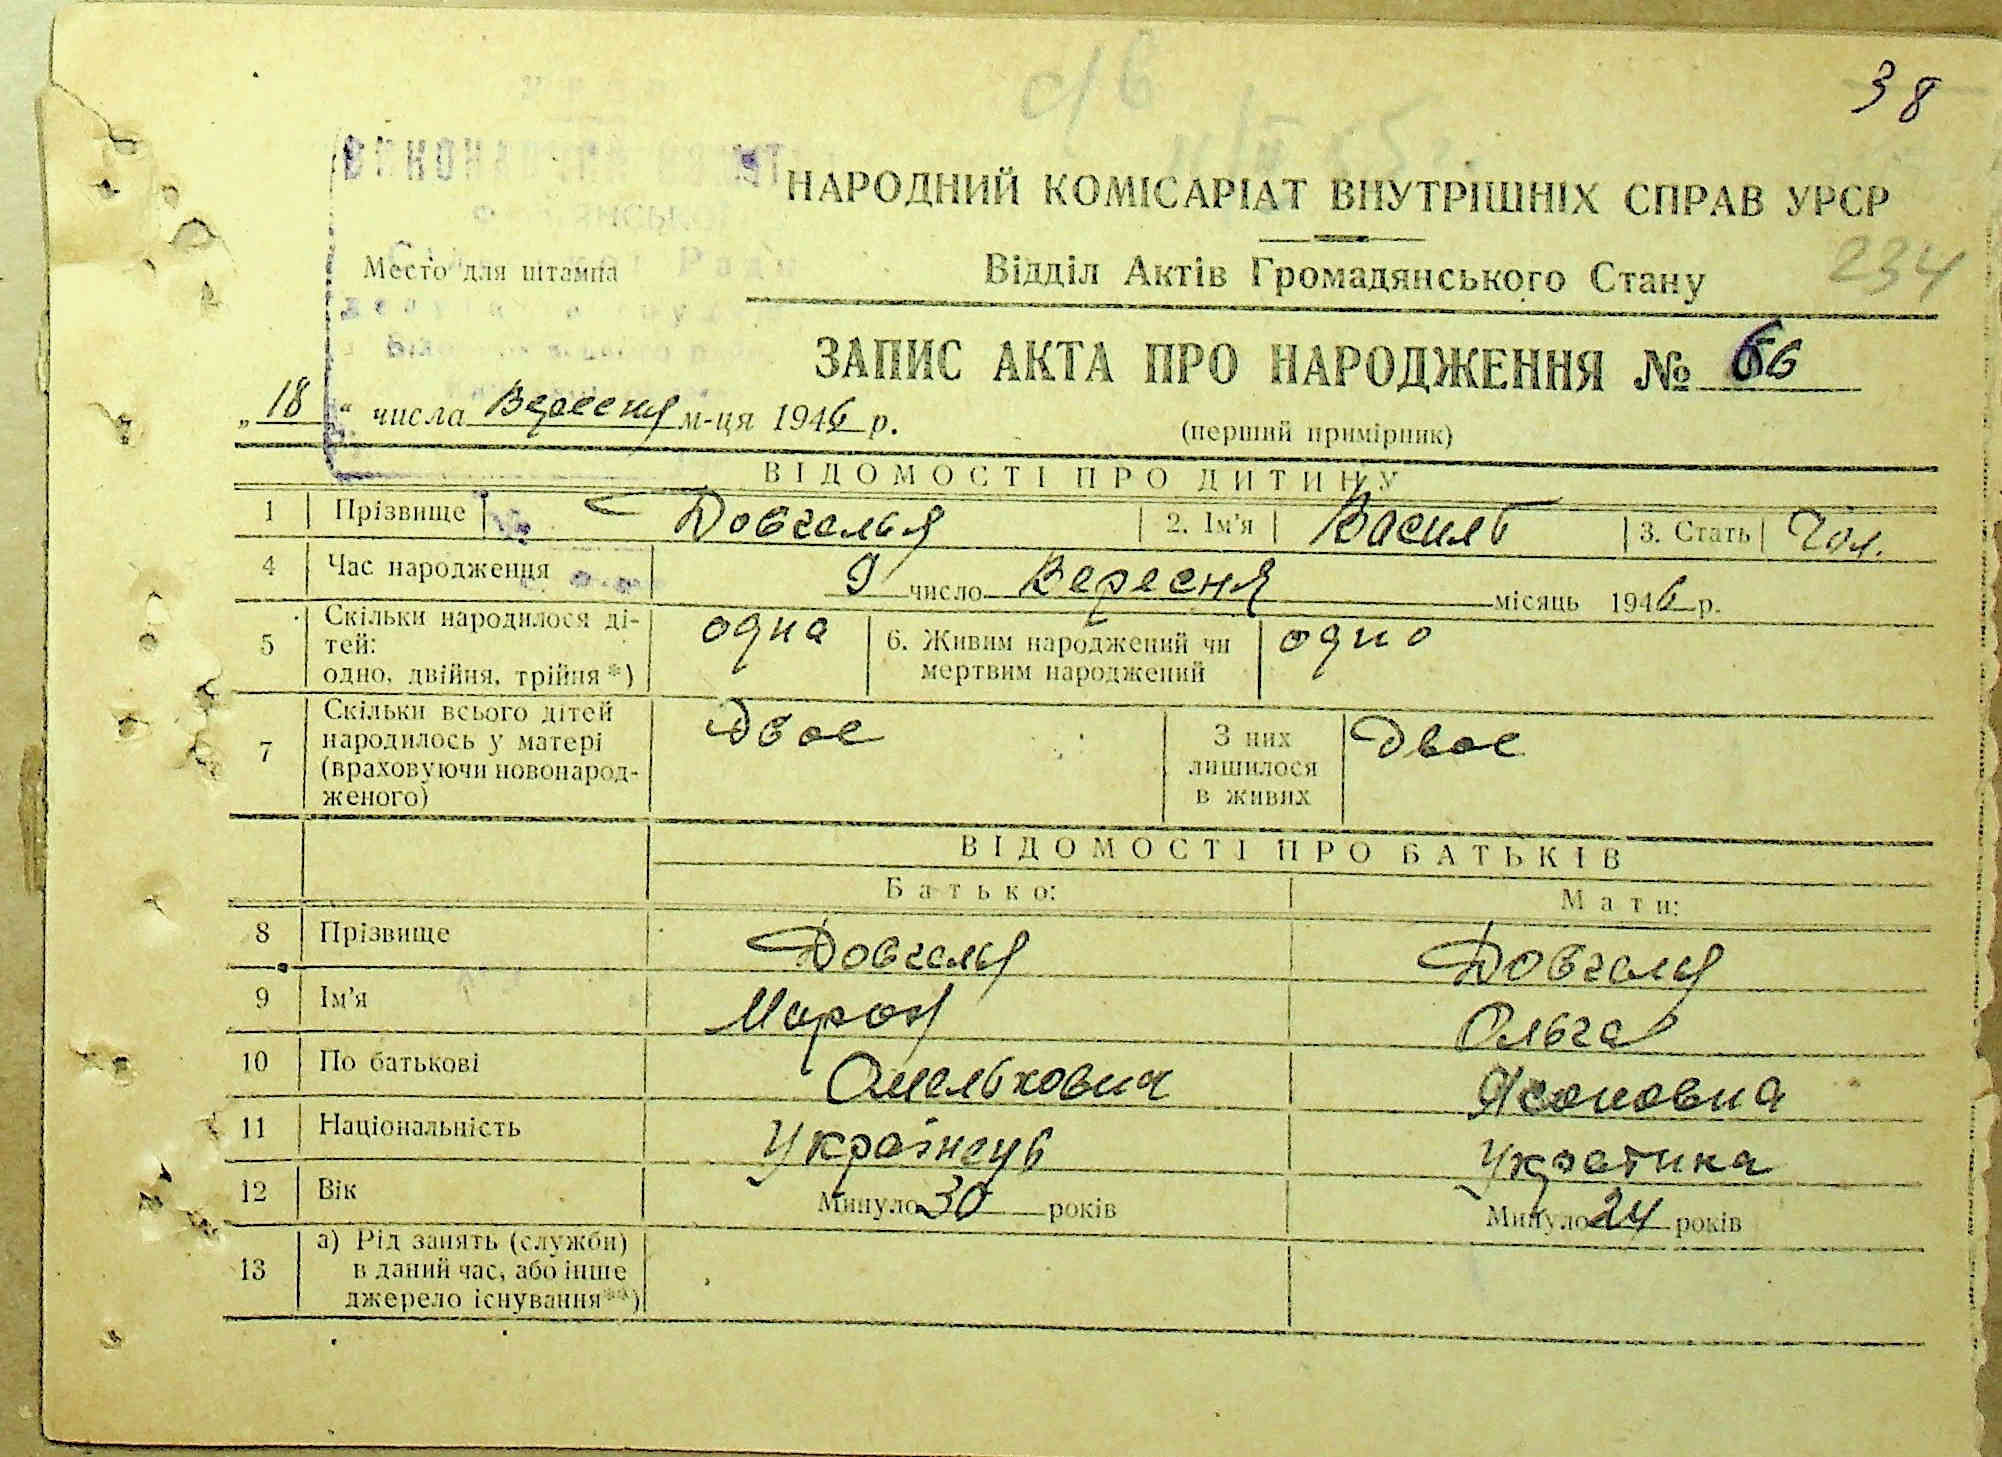 38
НАРОДНИЙ КОМІСАРІАТ ВНУТРІШНІХ СПРАВ УРСР
Место для штампа
Відділ Актів Громадянського Стану
234
ЗАПИС АКТА ПРО НАРОДЖЕННЯ № 66
„18“ числа Вересня м-ця 1946 р.
(перший примірник)
ВІДОМОСТІ ПРО ДИТИНУ
1 Прізвище Довгалья 2. Ім'я Василь 3. Стать Чол.
4 Час народження 9 число Вересня місяць 1946 р.
5 Скільки народилося ді-
тей:
одно, двійня, трійня*) одна 6. Живим народжений чи
мертвим народжений одно
7 Скільки всього дітей
народилось у матері
(враховуючи новонарод-
женого) Двое З них
лишилося
в живих Двое
ВІДОМОСТІ ПРО БАТЬКІВ
Батько: Мати:
8 Прізвище Довгаля Довгаля
9 Ім'я Мирон Ольга
10 По батькові Омелькович Ясоновна
11 Національність Українець Українка
12 Вік Минуло 30 років Минуло 24 років
13 а) Рід занять (служби)
в даний час, або інше
джерело існування**)